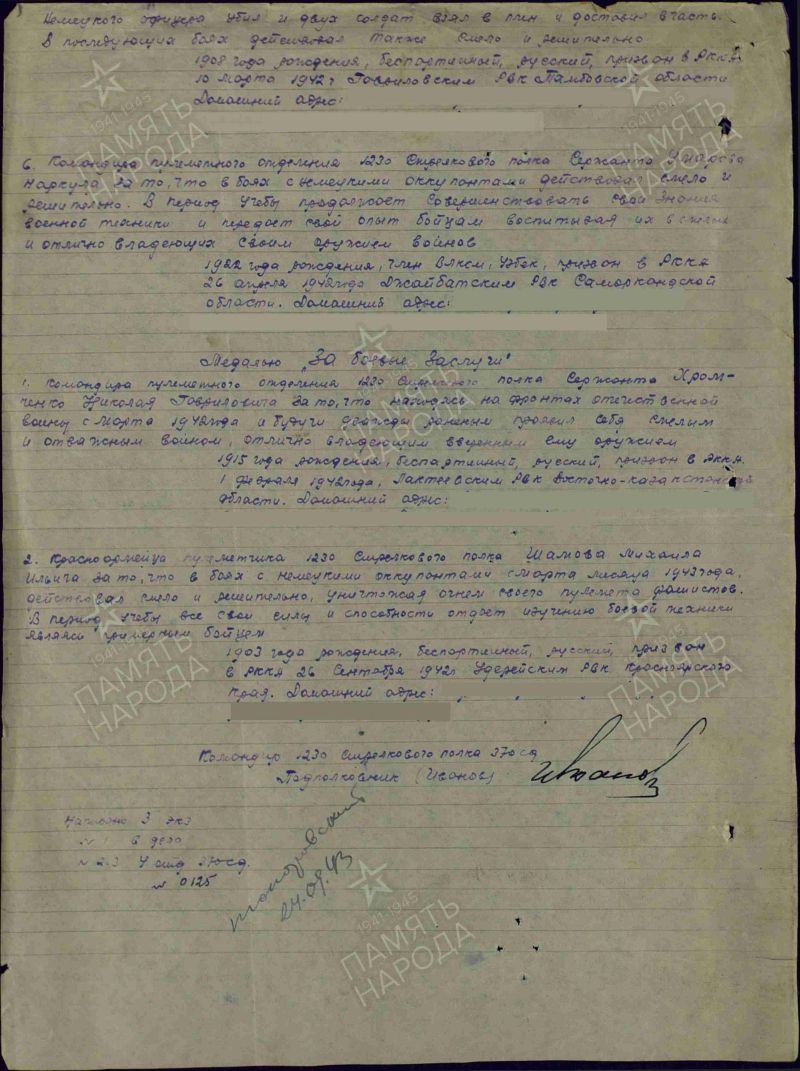 Немецкого офицера убил и двух солдат взял в плен и доставил в часть.
В последующих боях действовал также смело и решительно
1908 года рождения, беспартийный, русский, призван в РККА
10 марта 1942г Гавриловским РВК Тамбовской области
Домашний адрес:
6. Командира пулеметного отделения 1230 Стрелкового полка Сержанта Умарова
Наркула за то, что в боях с немецкими оккупантами действовал смело и
решительно. В период учебы продолжает совершенствовать свои знания
военной техники и передает свой опыт бойцам воспитывая их в смелых
и отлично владеющих своим оружием воинов
1922 года рождения, член ВЛКСМ, Узбек, призван в РККА
26 апреля 1942года Джамбайским РВК Самаркандской
области. Домашний адрес:
Медалью "За боевые Заслуги"
1. Командира пулеметного отделения 1230 Стрелкового полка Сержанта Хром-
ченко Николая Гавриловича за то, что находясь на фронтах отечественной
войны с марта 1942года и будучи дважды раненым проявил себя смелым
и отважным воином, отлично владеющим вверенным ему оружием
1915 года рождения, беспартийный, русский, призван в РККА
1 февраля 1942года, РВК Восточно-казахстанской
области. Домашний адрес:
2. Красноармейца пулеметчика 1230 Стрелкового полка Шамова Михаила
Ильича за то, что в боях с немецкими оккупантами с марта месяца 1943года,
действовал смело и решительно, уничтожая огнем своего пулемета фашистов.
В период учебы все свои силы и способности отдает изучению боевой техники
являясь примерным бойцем
1903 года рождения, беспартийный, русский, призван
в РККА 26 Сентября 1942г Удерейским РВК Красноярского
края. Домашний адрес:
Командир 1230 Стрелкового полка 370сд
Подполковник (Иванов)
Иванов
Написано 3 экз
№ 1 в дело
№ 2.3 370сд
№ 0125
24.09.43
1941-1945
ПАМЯТЬ
НАРОДА
1941-1945
ПАМЯТЬ
НАРОДА
1941-1945
ПАМЯТЬ
НАРОДА
1941-1945
ПАМЯТЬ
НАРОДА
1941-1945
ПАМЯТЬ
НАРОДА
1941-1945
ПАМЯТЬ
НАРОДА